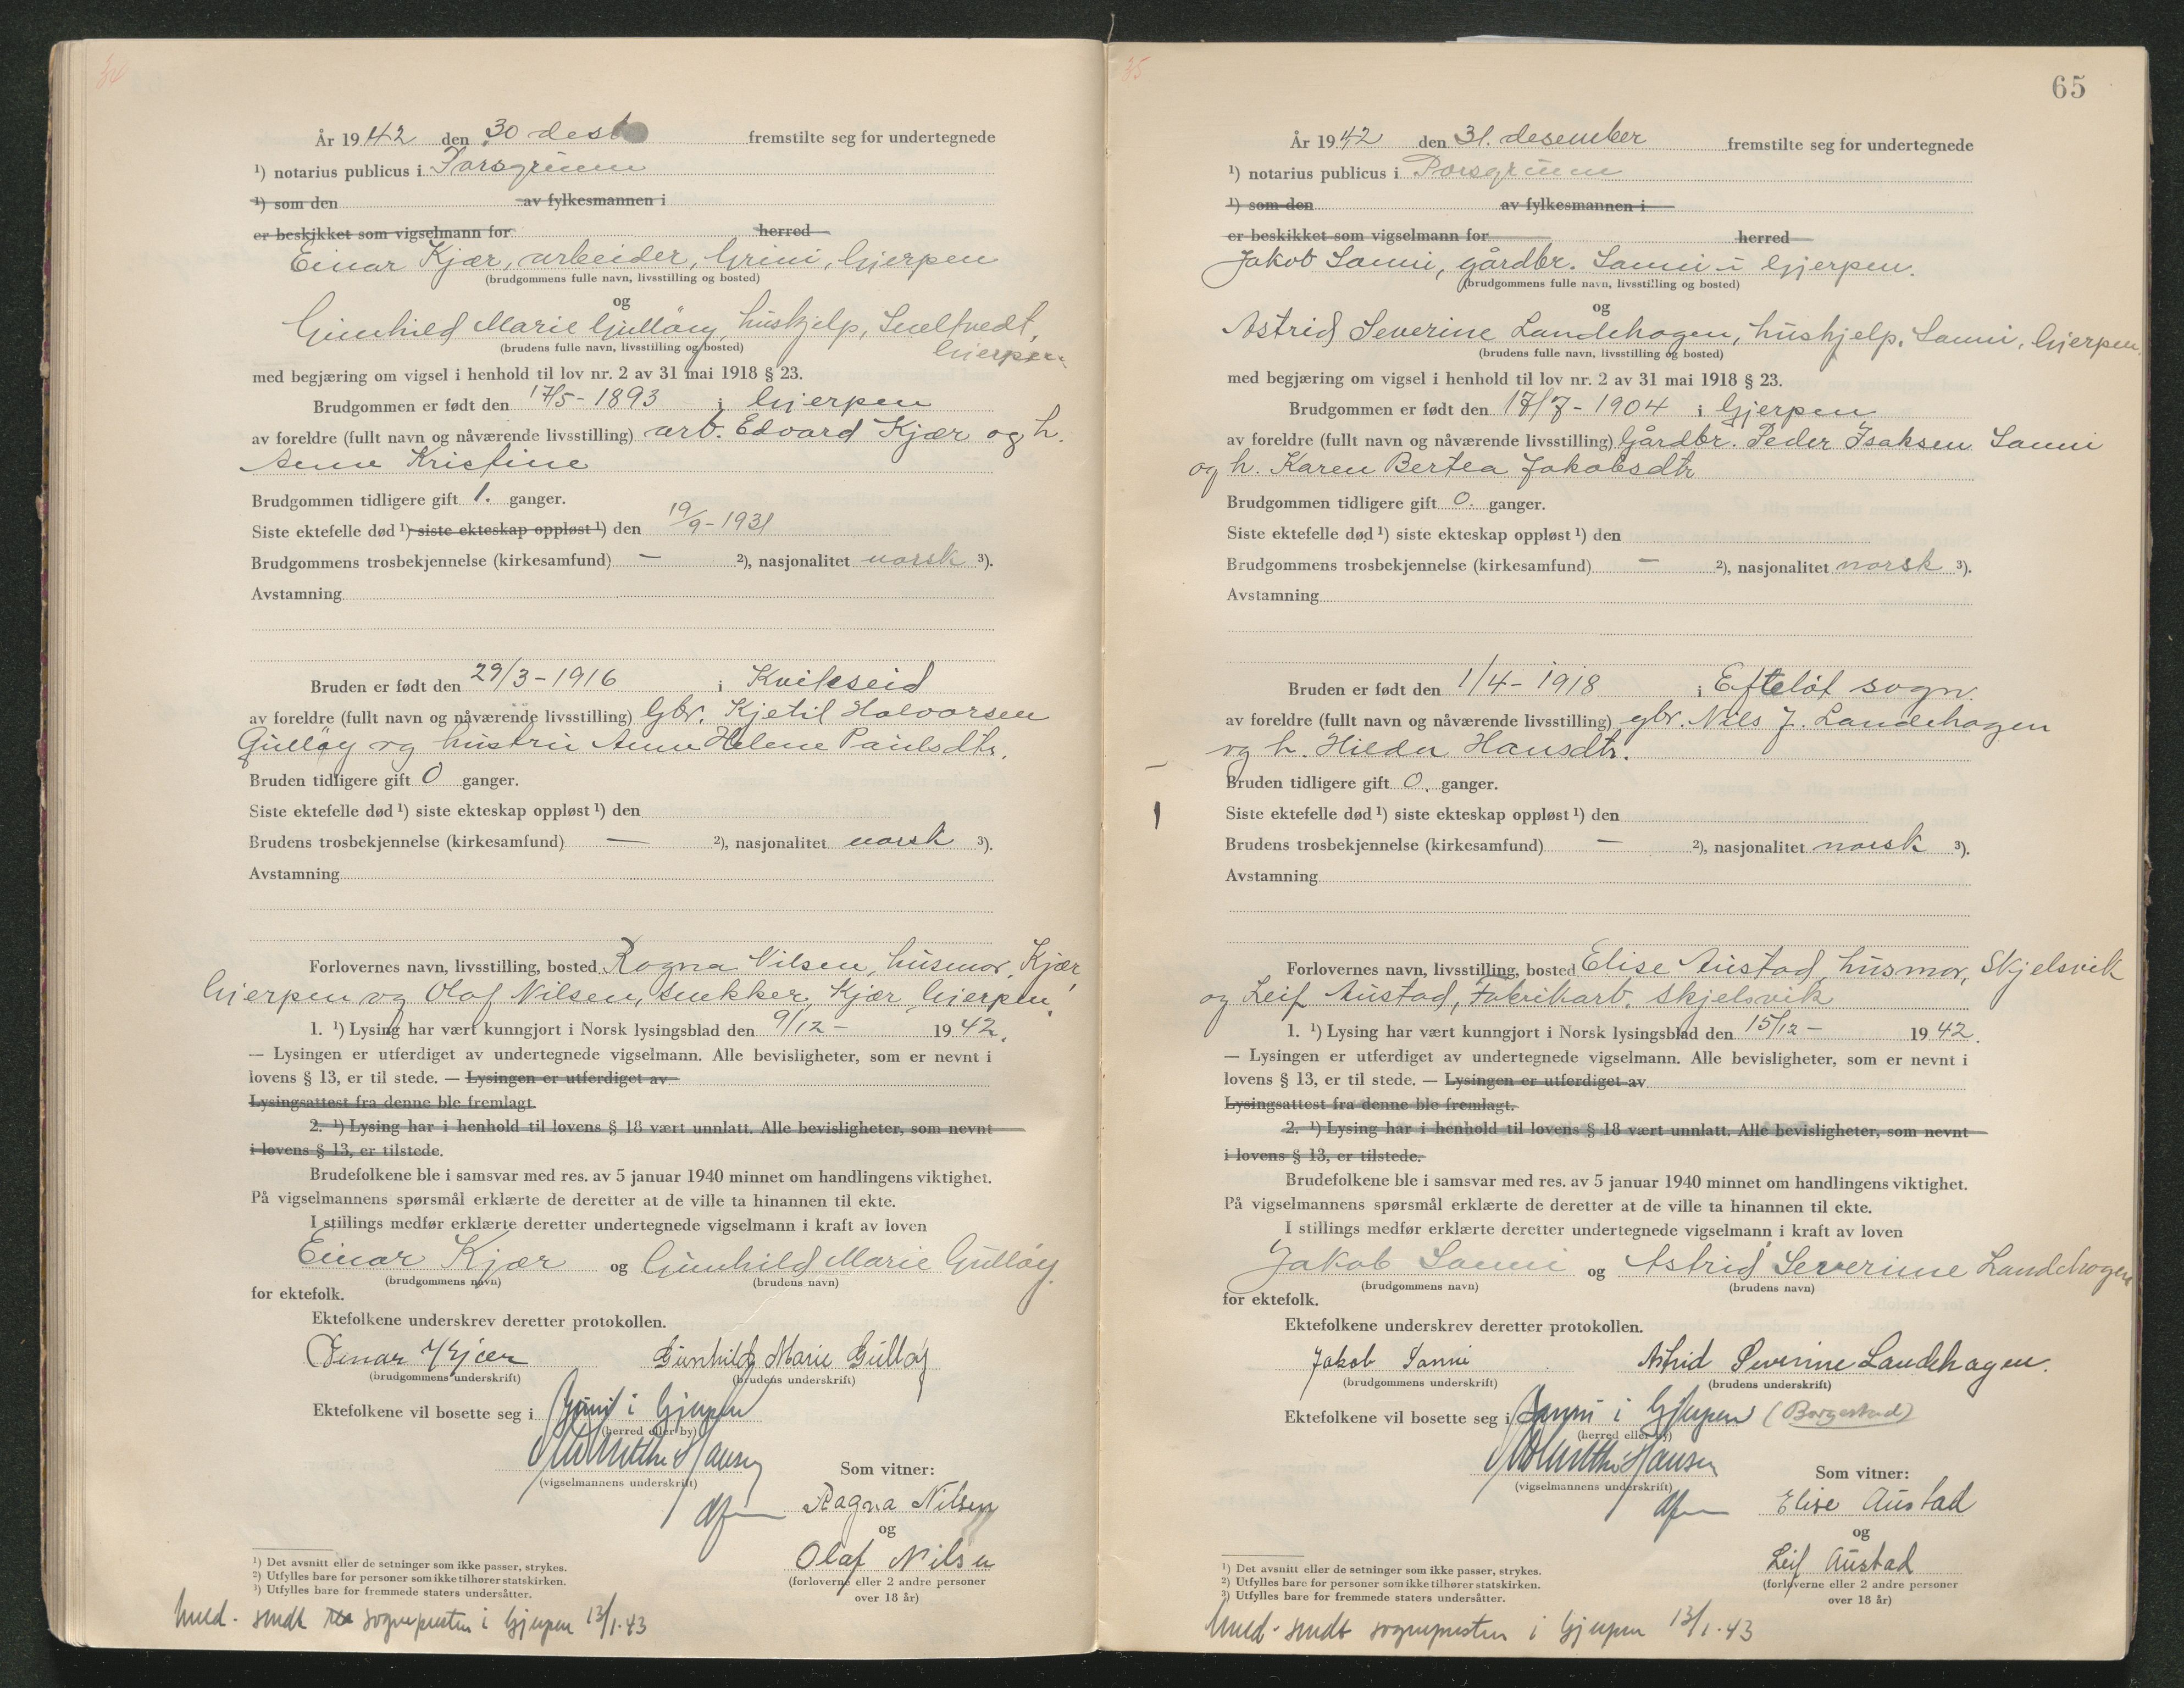 År 1942 den 30 des fremstilte seg for undertegnede
¹) notarius publicus i Porsgrunn
¹) som den av fylkesmannen i
er beskikket som vigselmann for herred
Einar Kjær, arbeider, Grini, Gjerpen
(brudgommens fulle navn, livsstilling og bosted)
og
Gunhild Marie Gulløy, huskjelp, Sneltvedt,
(brudens fulle navn, livsstilling og bosted) Gjerpen
med begjæring om vigsel i henhold til lov nr. 2 av 31 mai 1918 § 23.
Brudgommen er født den 17/5 - 1893 i Gjerpen
av foreldre (fullt navn og nåværende livsstilling) arb. Edvard Kjær og h.
Anne Kristine
Brudgommen tidligere gift 1. ganger.
Siste ektefelle død ¹) siste ekteskap oppløst ¹) den 19/9 - 1931
Brudgommens trosbekjennelse (kirkesamfund) — ²), nasjonalitet norsk ³).
Avstamning
Bruden er født den 29/3 - 1916 i Kviteseid
av foreldre (fullt navn og nåværende livsstilling) Gbr. Kjetil Halvorsen
Gulløy og hustru Anne Helene Paulsdtr.
Bruden tidligere gift 0 ganger.
Siste ektefelle død ¹) siste ekteskap oppløst ¹) den
Brudens trosbekjennelse (kirkesamfund) — ²), nasjonalitet norsk ³).
Avstamning
Forlovernes navn, livsstilling, bosted Ragna Nilsen, husmor, Kjær,
Gjerpen og Olaf Nilsen, snekker, Kjær, Gjerpen.
1. ¹) Lysing har vært kunngjort i Norsk lysingsblad den 9/12 - 1942.
— Lysingen er utferdiget av undertegnede vigselmann. Alle bevisligheter, som er nevnt i
lovens § 13, er til stede. — Lysingen er utferdiget av
Lysingsattest fra denne ble fremlagt.
2. ¹) Lysing har i henhold til lovens § 18 vært unnlatt. Alle bevisligheter, som nevnt
i lovens § 13, er tilstede.
Brudefolkene ble i samsvar med res. av 5 januar 1940 minnet om handlingens viktighet.
På vigselmannens spørsmål erklærte de deretter at de ville ta hinannen til ekte.
I stillings medfør erklærte deretter undertegnede vigselmann i kraft av loven
Einar Kjær og Gunhild Marie Gulløy
(brudgommens navn) (brudens navn)
for ektefolk.
Ektefolkene underskrev deretter protokollen.
Einar Kjær Gunhild Marie Gulløy
(brudgommens underskrift) (brudens underskrift)
Ektefolkene vil bosette seg i Grini i Gjerpen
(herred eller by)
Hansen
(vigselmannens underskrift) Som vitner:
Ragna Nilsen
og
Olaf Nilsen
(forloverne eller 2 andre personer
over 18 år)
¹) Det avsnitt eller de setninger som ikke passer, strykes.
²) Utfylles bare for personer som ikke tilhører statskirken.
³) Utfylles bare for fremmede staters undersåtter.
Meld. sendt sognepresten i Gjerpen 13/1.43
35
65
År 1942 den 31. desember fremstilte seg for undertegnede
¹) notarius publicus i Porsgrunn
¹) som den av fylkesmannen i
er beskikket som vigselmann for herred
Jakob Sanni, gårdbr. Sanni i Gjerpen.
(brudgommens fulle navn, livsstilling og bosted)
og
Astrid Severine Landehagen, hushjelp, Sanni, Gjerpen.
(brudens fulle navn, livsstilling og bosted)
med begjæring om vigsel i henhold til lov nr. 2 av 31 mai 1918 § 23.
Brudgommen er født den 17/7 - 1904 i Gjerpen
av foreldre (fullt navn og nåværende livsstilling) Gårdbr. Peder Isaksen Sanni
og h. Karen Bertea Jakobsdtr
Brudgommen tidligere gift 0. ganger.
Siste ektefelle død ¹) siste ekteskap oppløst ¹) den
Brudgommens trosbekjennelse (kirkesamfund) — ²), nasjonalitet norsk ³).
Avstamning
Bruden er født den 1/4 - 1918 i Efteløt sogn.
av foreldre (fullt navn og nåværende livsstilling) gbr. Nils J. Landehagen
og h. Hilda Hansdtr.
Bruden tidligere gift 0. ganger.
Siste ektefelle død ¹) siste ekteskap oppløst ¹) den
Brudens trosbekjennelse (kirkesamfund) — ²), nasjonalitet norsk ³).
Avstamning
Forlovernes navn, livsstilling, bosted Elise Austad, husmor, Skjelsvik
og Leif Austad, Fabrikarb. Skjelsvik
1. ¹) Lysing har vært kunngjort i Norsk lysingsblad den 15/12 - 1942.
— Lysingen er utferdiget av undertegnede vigselmann. Alle bevisligheter, som er nevnt i
lovens § 13, er til stede. — Lysingen er utferdiget av
Lysingsattest fra denne ble fremlagt.
2. ¹) Lysing har i henhold til lovens § 18 vært unnlatt. Alle bevisligheter, som nevnt
i lovens § 13, er tilstede.
Brudefolkene ble i samsvar med res. av 5 januar 1940 minnet om handlingens viktighet.
På vigselmannens spørsmål erklærte de deretter at de ville ta hinannen til ekte.
I stillings medfør erklærte deretter undertegnede vigselmann i kraft av loven
Jakob Sanni og Astrid Severine Landehagen
(brudgommens navn) (brudens navn)
for ektefolk.
Ektefolkene underskrev deretter protokollen.
Jakob Sanni Astrid Severine Landehagen.
(brudgommens underskrift) (brudens underskrift)
Ektefolkene vil bosette seg i Sanni i Gjerpen (Borgestad)
(herred eller by)
Hansen
(vigselmannens underskrift) Som vitner:
Elise Austad
og
Leif Austad
(forloverne eller 2 andre personer
over 18 år)
¹) Det avsnitt eller de setninger som ikke passer, strykes.
²) Utfylles bare for personer som ikke tilhører statskirken.
³) Utfylles bare for fremmede staters undersåtter.
Meld. sendt sognepresten i Gjerpen 13/1.43